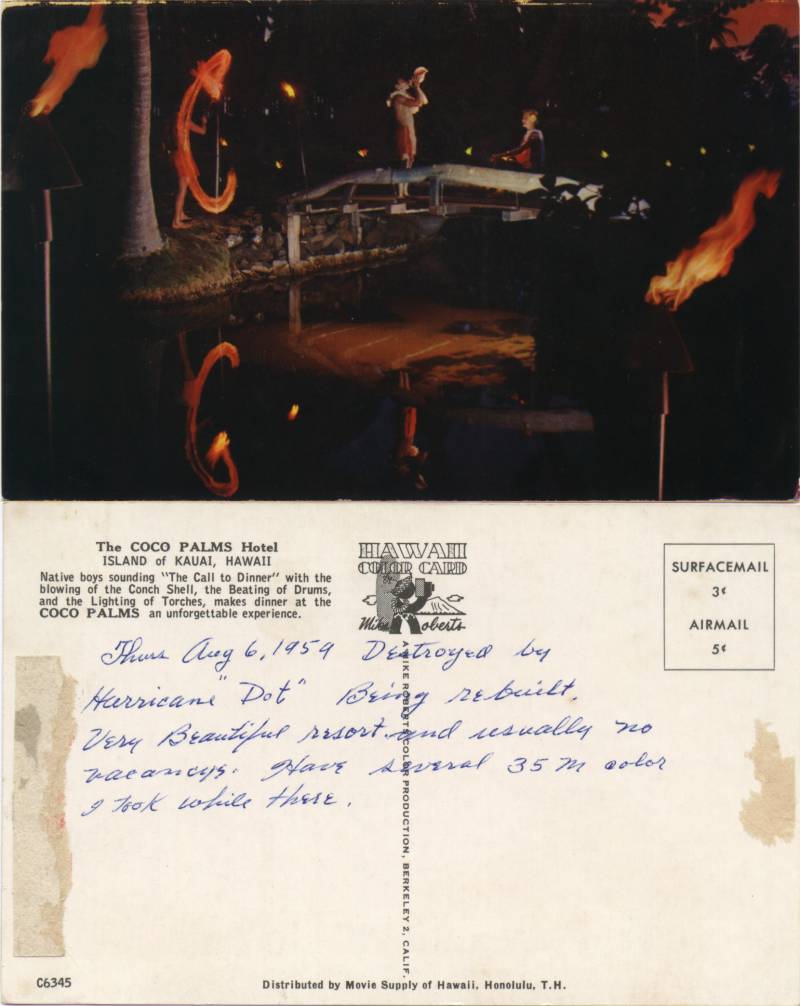 The COCO PALMS Hotel
ISLAND of KAUAI, HAWAII
Native boys sounding "The Call to Dinner" with the
blowing of the Conch Shell, the Beating of Drums,
and the Lighting of Torches, makes dinner at the
COCO PALMS an unforgettable experience.
HAWAII
COLOR CARD
By
Mike Roberts
SURFACEMAIL
3¢
AIRMAIL
5¢
Thurs Aug 6, 1959 Destroyed by
Hurricane "Dot" Being rebuilt.
Very Beautiful resort and usually no
vacancys. Have several 35 m color
I took while there.
A MIKE ROBERTS COLOR PRODUCTION, BERKELEY 2, CALIF.
C6345
Distributed by Movie Supply of Hawaii, Honolulu, T.H.